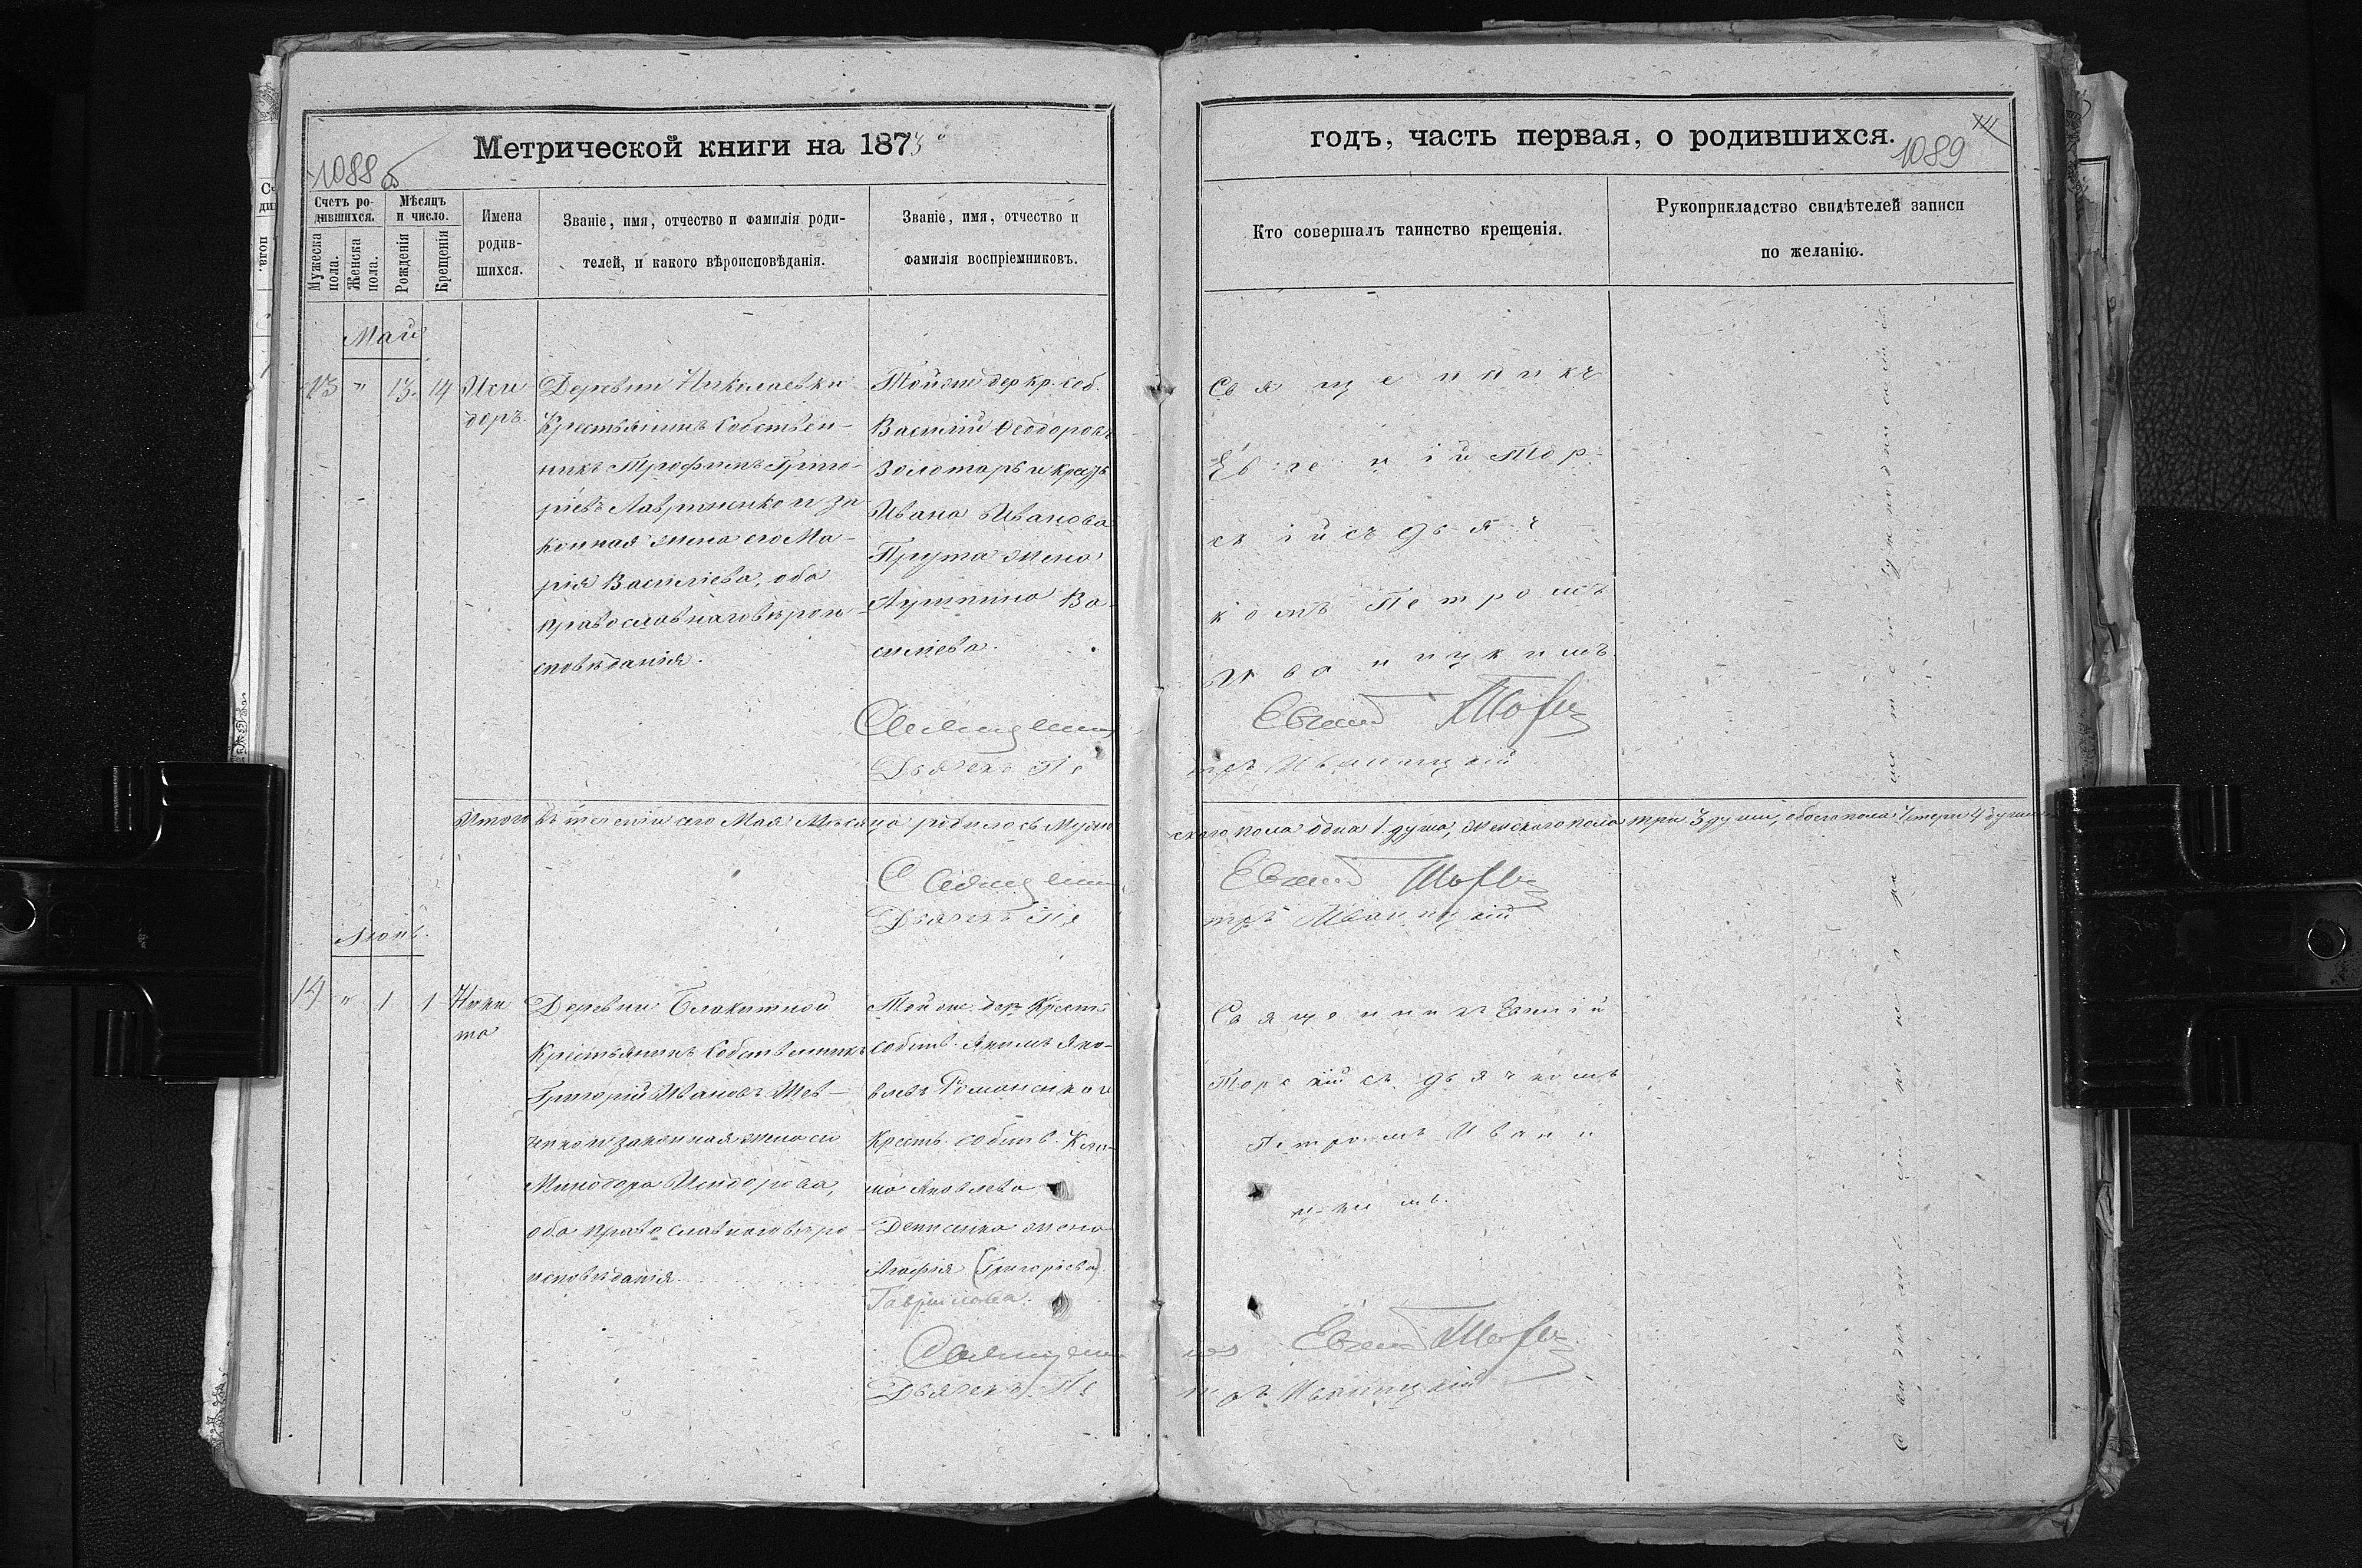 Метрической книги на 1873й
1088 об
Счетъ ро-
дившихся.
Мѣсяцъ
и число.
Мужеска
пола.
Женска
пола.
Рожденія
Крещенія
Имена
родив-
шихся.
Званіе, имя, отчество и фамилія роди-
телей, и какого вѣроисповѣданія.
Званіе, имя, отчество и
фамилія воспріемниковъ.
Май
13 " 13. 14
Иси
доръ.
Деревни Николаевки
Крестьянинъ Собствен-
никъ Трофимъ Григо-
ріевъ Лавриненко и за
конная жена его Ма-
рія Василіева, оба
православнаго вѣрои-
сповѣданія.
Той же дер. кр. соб.
Василій Ѳеодоровъ
Золотарь и крест.
Ивана Иванова
Прута жена
Васи
силіева.
Священник
Дьячекъ Пе
Итого въ теченіи сего Мая Мѣсяца родилось Муже
Священник
Дьячекъ Пе
Іюнь.
14 " 1 1
Ники
та
Деревни Блакитной
Крестьянинъ Собственникъ
Григорій Ивановъ Шев-
ченко и законная жена его
Минодора Исидорова,
оба православнаго вѣро-
исповѣданія.
Той же дер. Кресть.
собств. Якимъ Яко-
влевъ Романенко и
Кресть. собств. Кли-
ма Яковлева
Денисенка жена
Агафія (Григоріева)
Гаврилова.
Священни
Дьячекъ Пе
годъ, часть первая, о родившихся.
1089
Кто совершалъ таинство крещенія.
Рукоприкладство свидѣтелей записи
по желанію.
Священникъ
Евгеній Тор-
скій съ дьяч-
комъ Петромъ
Иваницкимъ
Евгеній
тръ Иваницкій
скаго пола одна 1. душа, женскаго пола три 3 души, обоего пола Четыре 4 души
Евгеній
тръ Иваницкій
Священникъ Евгеній
Торскій съ дьячкомъ
Петромъ Ивани
цкимъ.
Евгеній
тръ Иваницкій